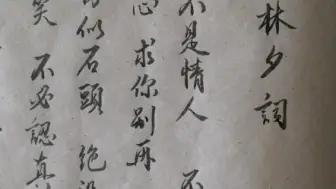 林夕詞
不是情人 不
心 求你别再
似石頭 绝
笑 不必認真